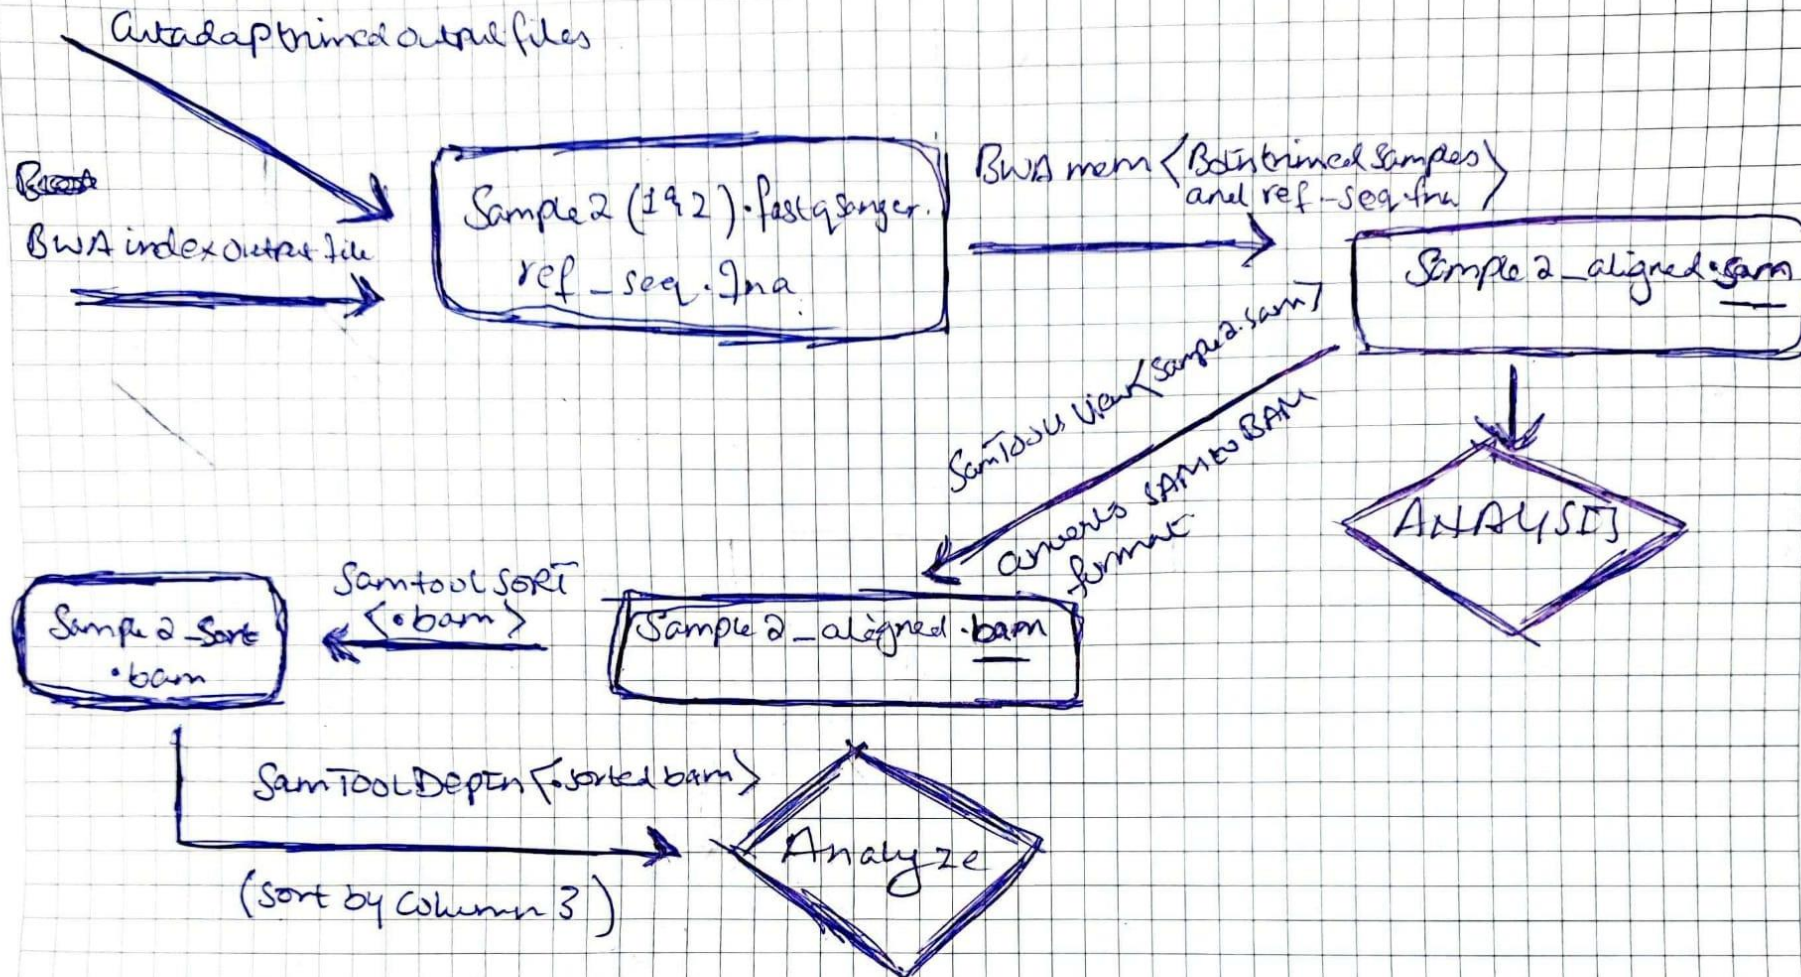 Cutadap trimed output files
BWA index output file
Sample 2 (1 & 2).fastqsanger.
ref_seq.fna
BWA mem <Both trimed samples
and ref-seq.fna>
Sample 2_aligned.sam
SamTools View <Sample2.sam>
converts SAM to BAM
format
ANALYSIS
Sample 2_aligned.bam
Samtool SORT
<.bam>
Sample 2_Sort
.bam
SamTOOL Depth <.sorted bam>
(Sort by Column 3)
Analyze